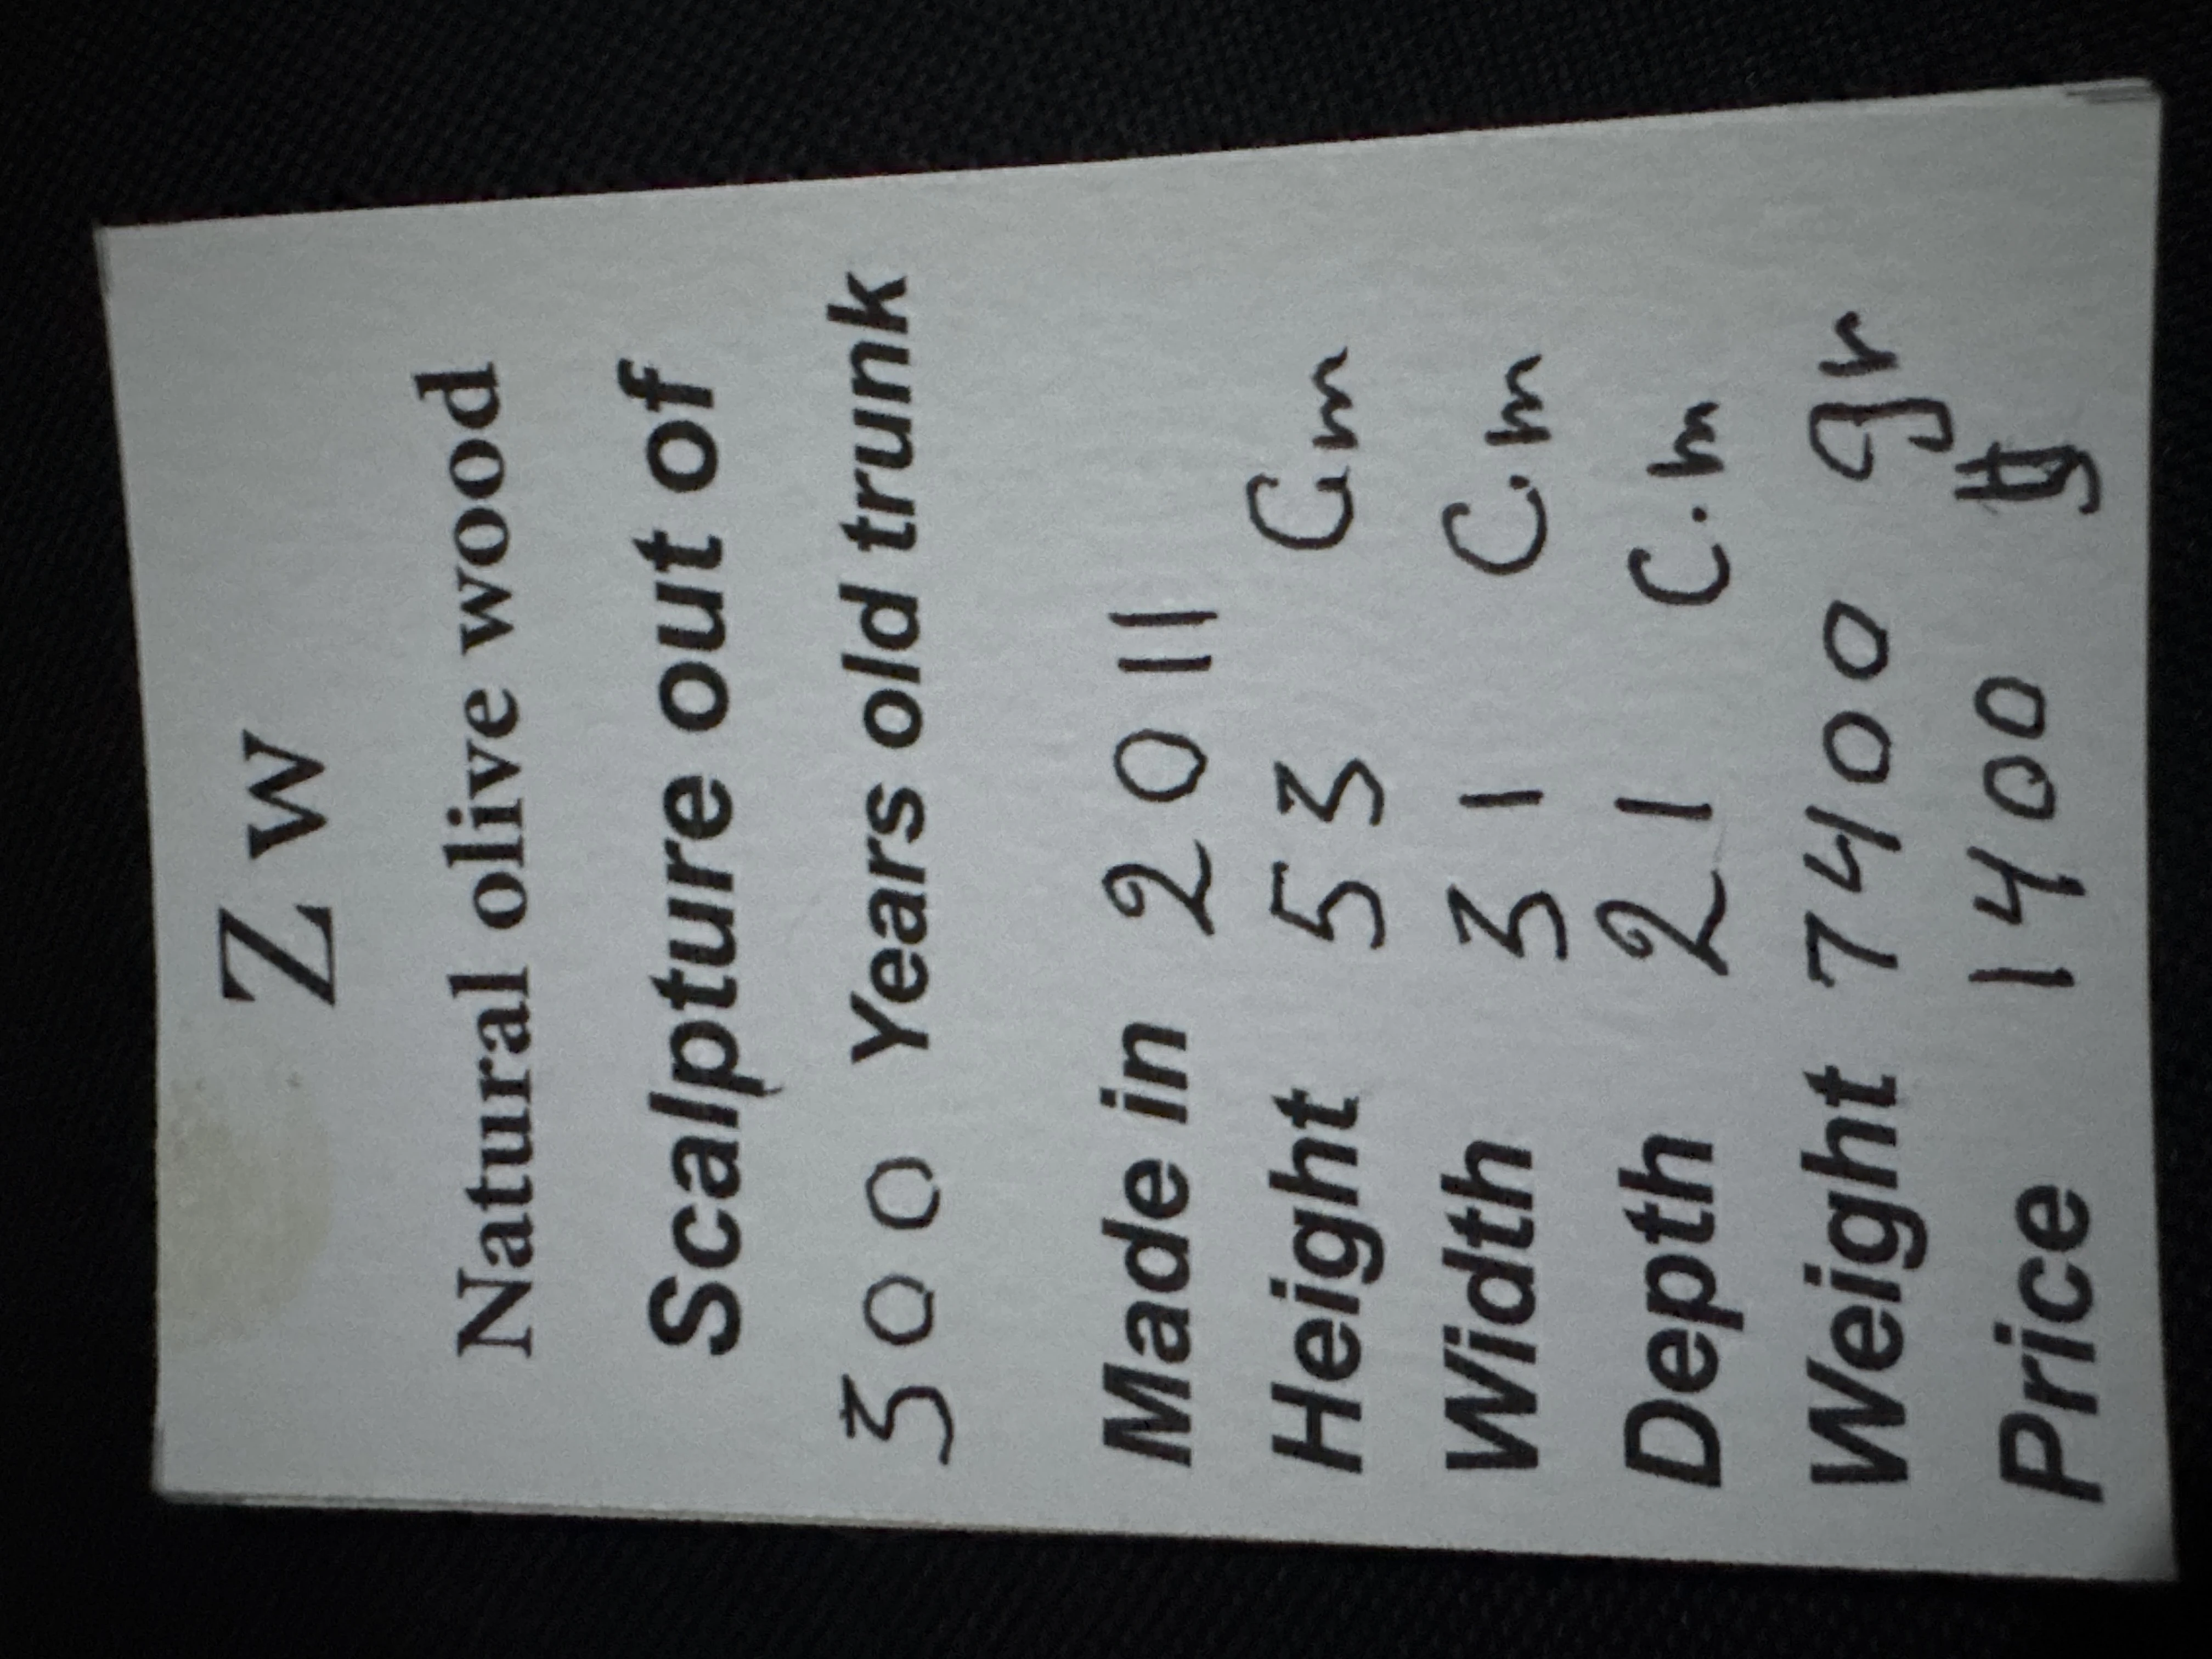 Z w
Natural olive wood
Scalpture out of
300 Years old trunk
Made in 2011
Height 53 Cm
Width 31 C.m
Depth 21 C.m
Weight 7400 gr
Price 1400